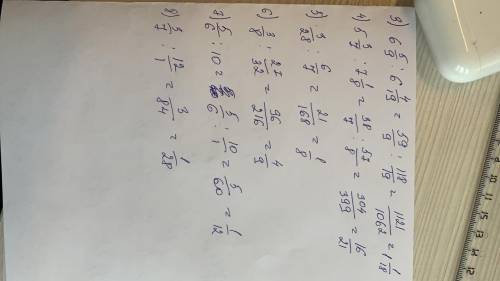 3) 6 5/9 : 6 4/19 = 59/9 : 118/19 = 1121/1062 = 1 1/18
4) 5 3/7 : 7 1/8 = 38/7 : 57/8 = 304/399 = 16/21
5) 3/28 : 6/7 = 21/168 = 1/8
6) 3/8 : 27/32 = 96/216 = 4/9
7) 5/6 : 10 = 5/6 : 10/1 = 5/60 = 1/12
8) 3/7 : 12/1 = 3/84 = 1/28